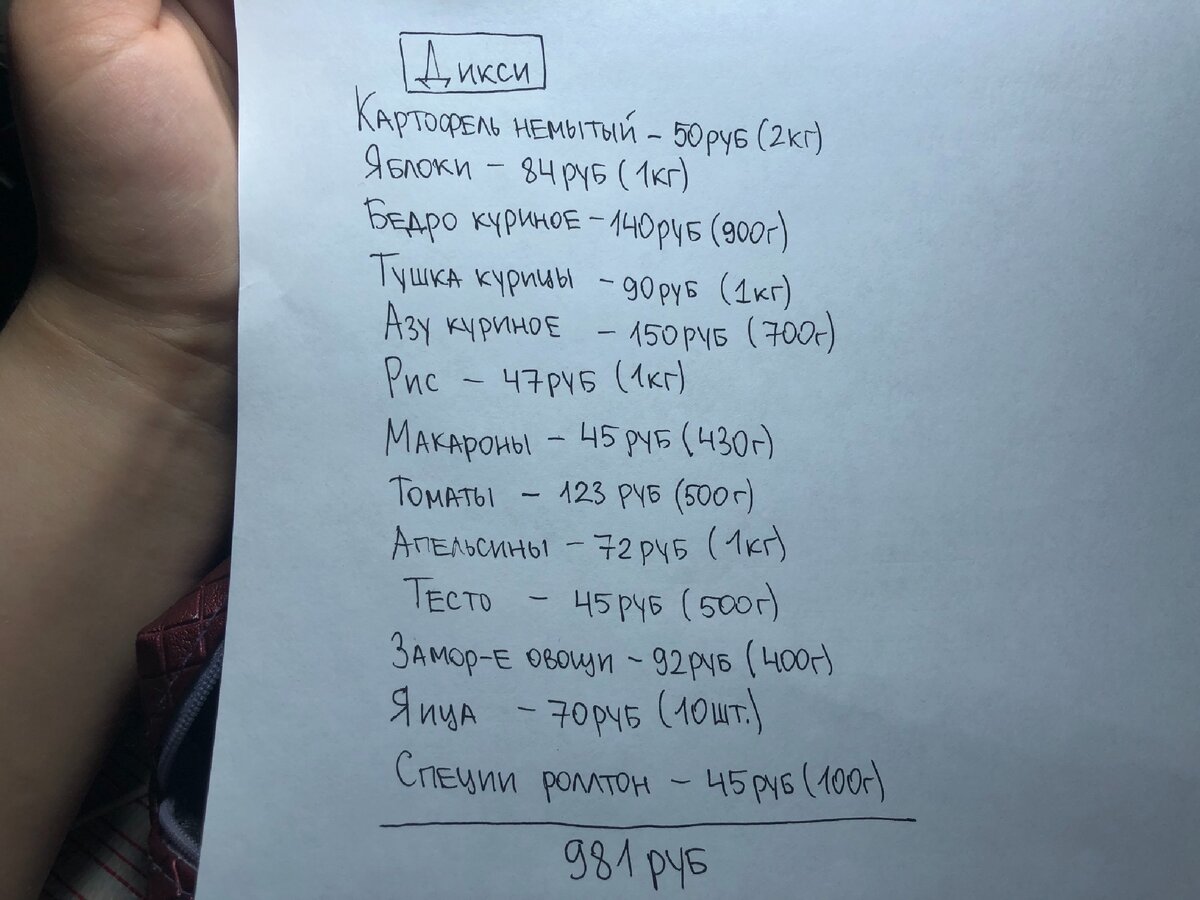 Дикси
Картофель немытый - 50руб (2кг)
Яблоки - 84руб (1кг)
Бедро куриное - 140руб (900г)
Тушка курицы - 90руб (1кг)
Азу куриное - 150руб (700г)
Рис - 47руб (1кг)
Макароны - 45руб (430г)
Томаты - 123 руб (500г)
Апельсины - 72руб (1кг)
Тесто - 45руб (500г)
Замор-е овощи - 92руб (400г)
Яица - 70руб (10шт.)
Специи роллтон - 45руб (100г)
981 руб